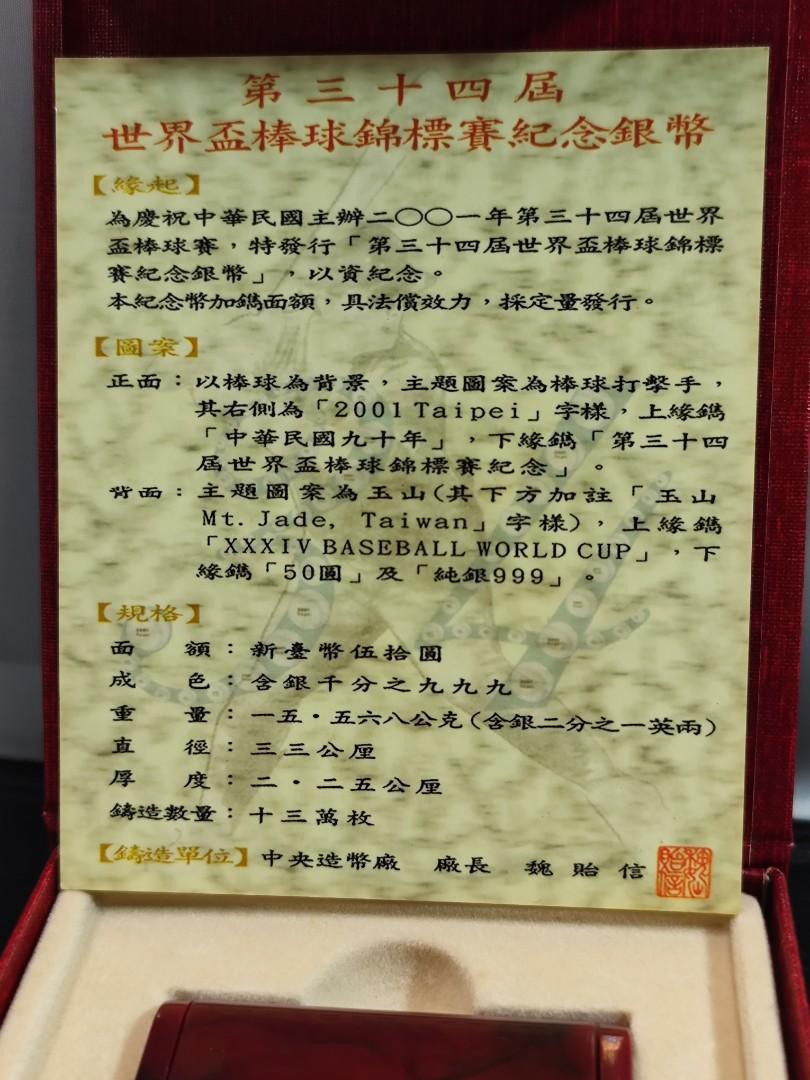 第三十四屆
世界盃棒球錦標賽紀念銀幣
【緣起】
為慶祝中華民國主辦二〇〇一年第三十四屆世界
盃棒球賽，特發行「第三十四屆世界盃棒球錦標
賽紀念銀幣」，以資紀念。
本紀念幣加鐫面額，具法償效力，採定量發行。
【圖案】
正面：以棒球為背景，主題圖案為棒球打擊手，
其右側為「2001 Taipei」字樣，上緣鐫
「中華民國九十年」，下緣鐫「第三十四
屆世界盃棒球錦標賽紀念」。
背面：主題圖案為玉山(其下方加註「玉山
Mt. Jade, Taiwan」字樣)，上緣鐫
「XXXIV BASEBALL WORLD CUP」，下
緣鐫「50圓」及「純銀999」。
【規格】
面額：新臺幣伍拾圓
成色：含銀千分之九九九
重量：一五・五六八公克(含銀二分之一英兩)
直徑：三三公厘
厚度：二・二五公厘
鑄造數量：十三萬枚
【鑄造單位】中央造幣廠 廠長 魏貽信